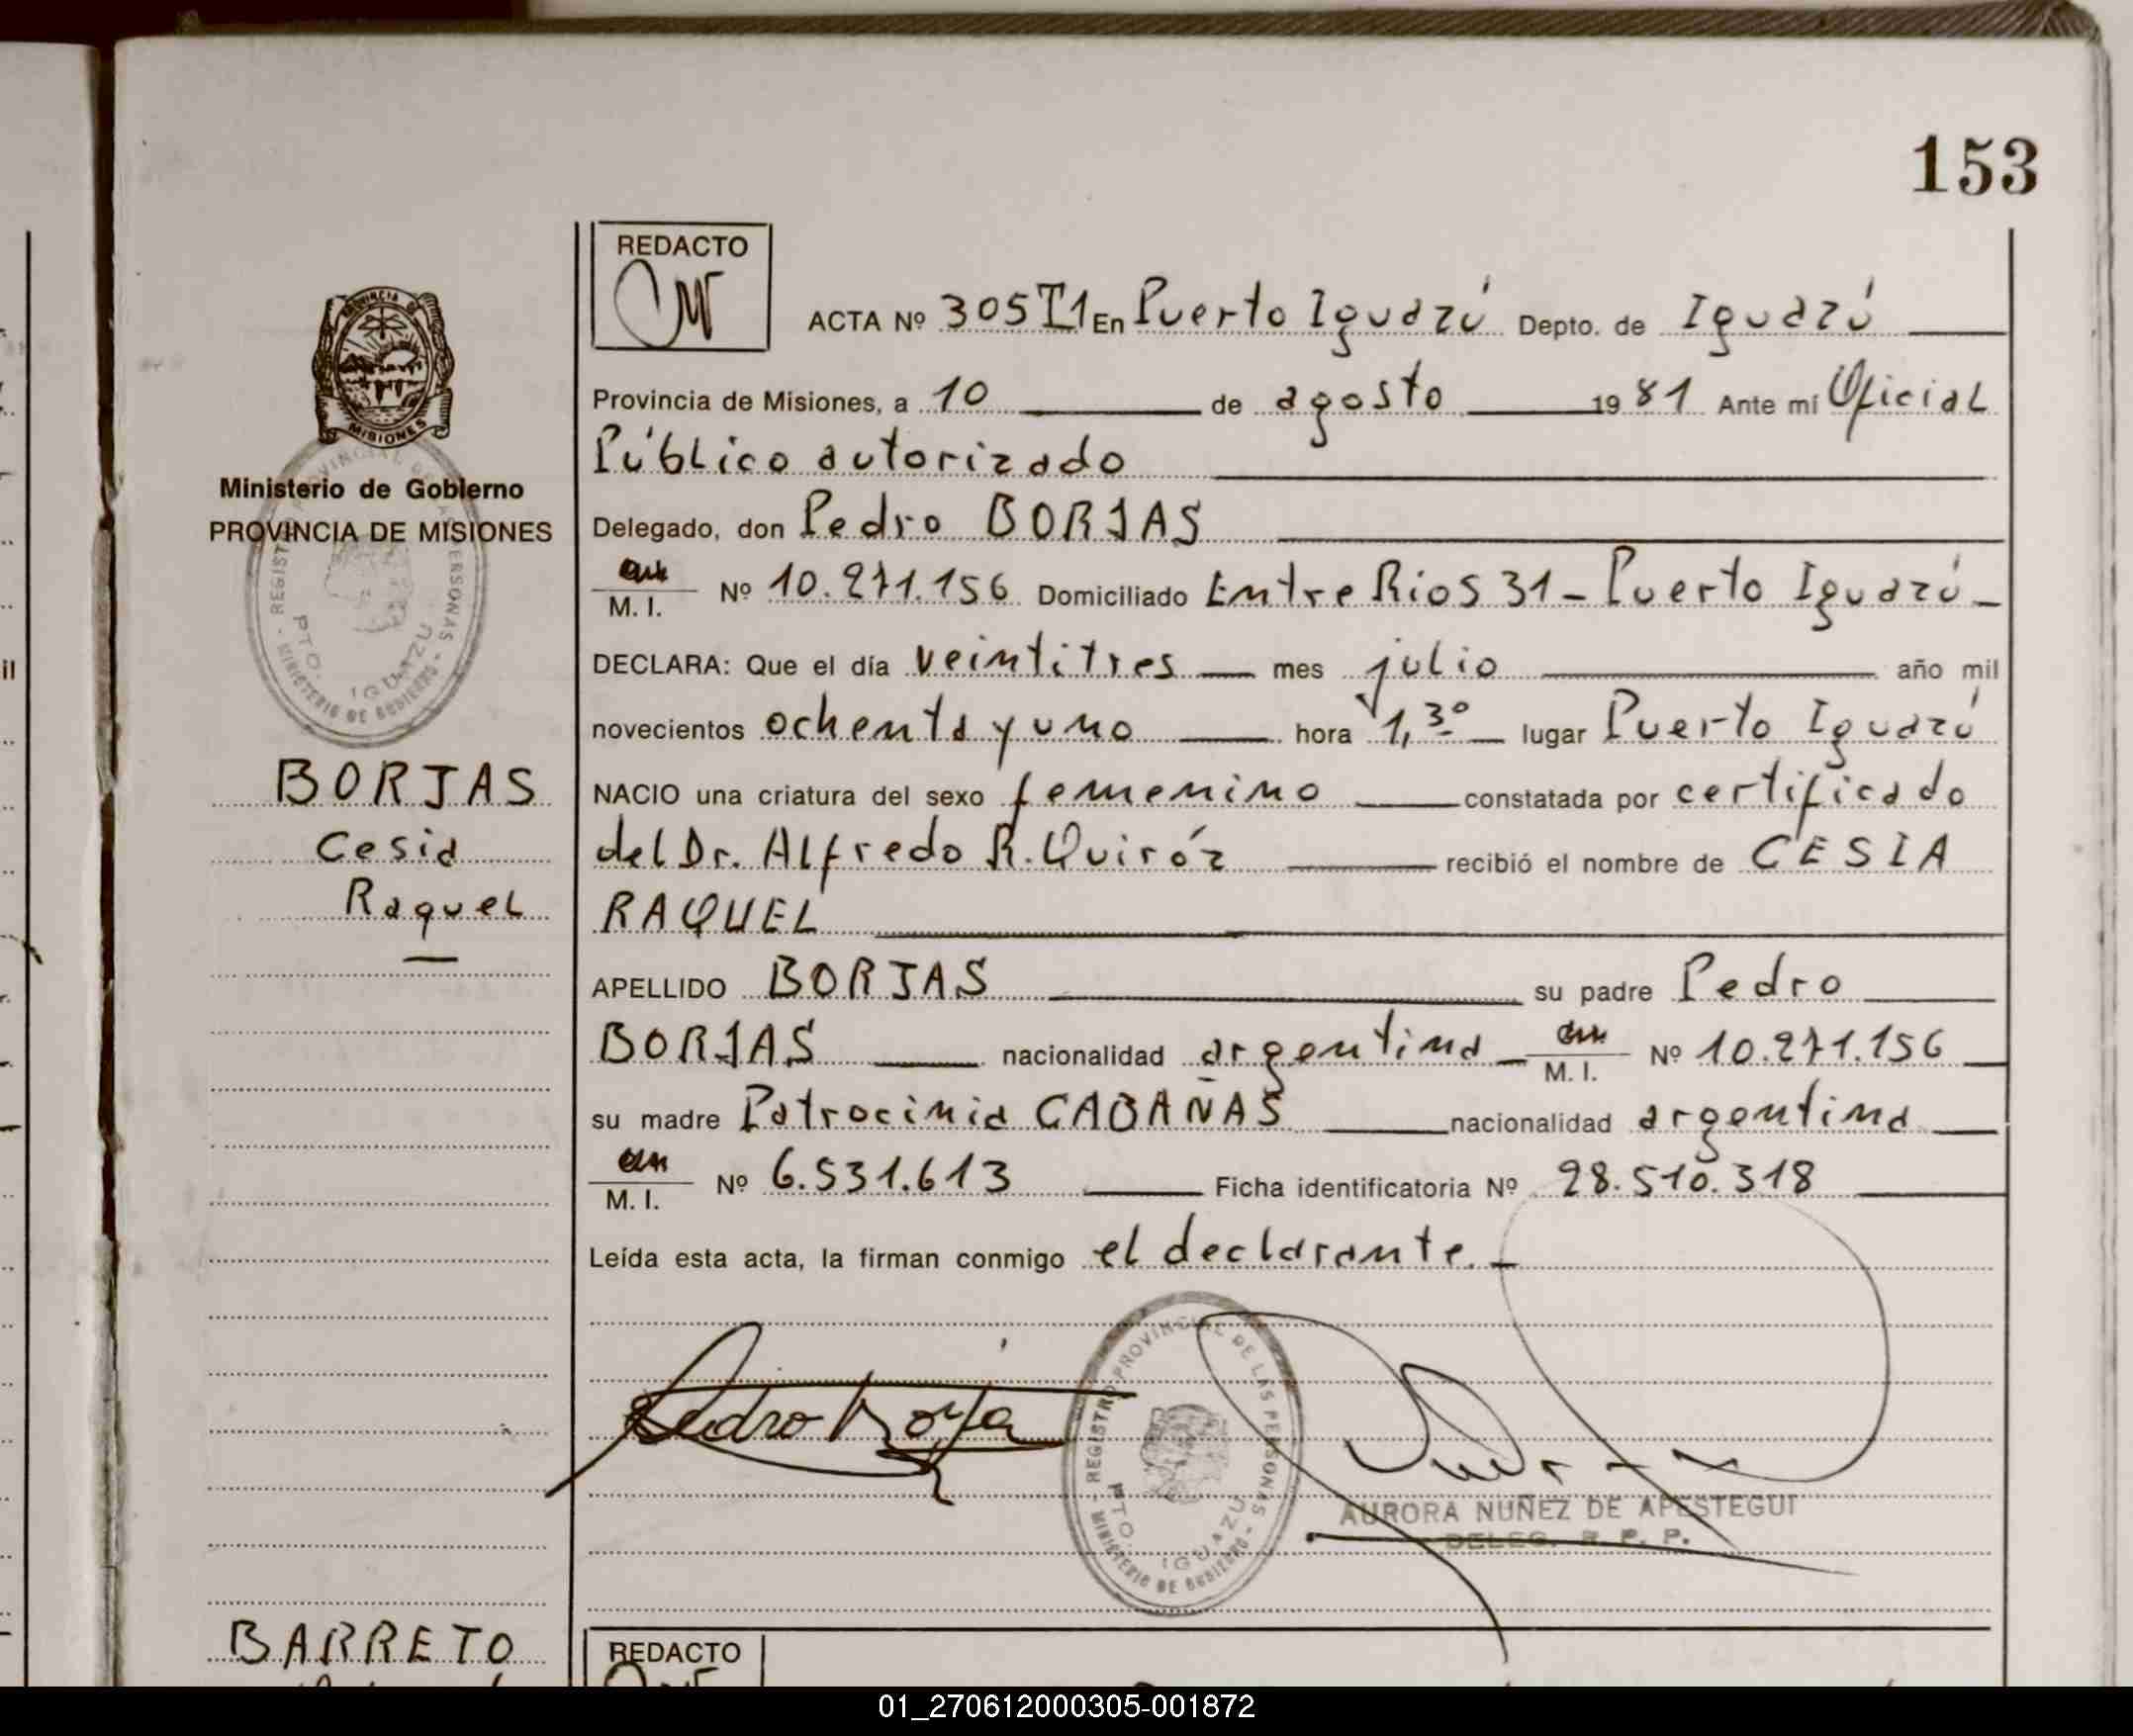 153
REDACTO
ACTA Nº 305 T1 En Puerto Iguazú Depto. de Iguazú
Provincia de Misiones, a 10 de agosto 1981 Ante mí Oficial
Público autorizado
Delegado, don Pedro BORJAS
M. I. Nº 10.271.156 Domiciliado Entre Rios 31 - Puerto Iguazú -
DECLARA: Que el día veintitres mes julio año mil
novecientos ochenta y uno hora 1,30 lugar Puerto Iguazú
NACIO una criatura del sexo femenino constatada por certificado
del Dr. Alfredo R. Quiróz recibió el nombre de CESIA
RAQUEL
APELLIDO BORJAS su padre Pedro
BORJAS nacionalidad argentina M. I. Nº 10.271.156
su madre Patrocinia CABAÑAS nacionalidad argentina
M. I. Nº 6.531.613 Ficha identificatoria Nº 28.510.318
Leída esta acta, la firman conmigo el declarante.-
Pedro Borja
REGISTRO PROVINCIAL DE LAS PERSONAS
PTO. IGUAZU
MINISTERIO DE GOBIERNO
AURORA NUÑEZ DE APESTEGUI
DELEG. R. P. P.
PROVINCIA DE
MISIONES
Ministerio de Gobierno
PROVINCIA DE MISIONES
REGISTRO PROVINCIAL DE LAS PERSONAS
PTO. IGUAZU
MINISTERIO DE GOBIERNO
BORJAS
Cesia
Raquel
BARRETO
REDACTO
il
01_270612000305-001872